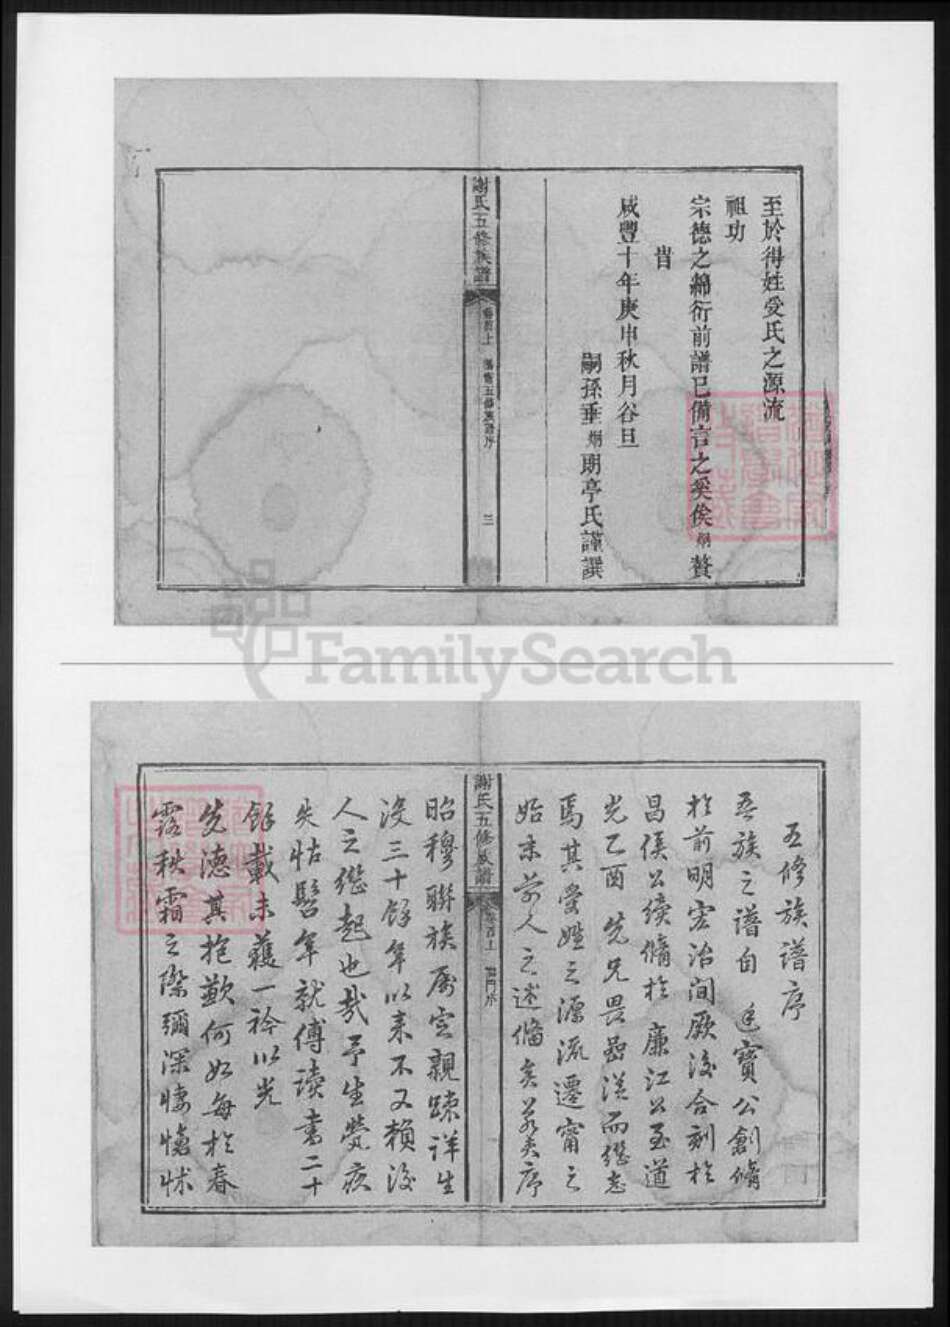 至於得姓受氏之源流
祖功
宗德之綿衍前譜已備言之奚俟炯贅
旹
咸豐十年庚申秋月谷旦
嗣孫垂炯朗亭氏謹譔
謝氏五修族譜
卷首上
五修族譜序
三
FamilySearch
五修族譜序
吾族之譜自 廷寶公創脩
於前明宏治間厥後合刻於
昌侯公續脩於 廉江公至道
光乙酉 先兄畏嵒從而繼志
焉其受姓之源流遷甯之
始末前人之述備矣若夫序
謝氏五修族譜
卷首上
昭穆聯族屬定親疎詳生
沒三十餘年以來不又賴後
人之繼起也哉予生煢疚
失怙髫年就傅讀書二十
餘載未獲一衿以光
先德其抱歉何如每於春
露秋霜之際彌深悽愴怵